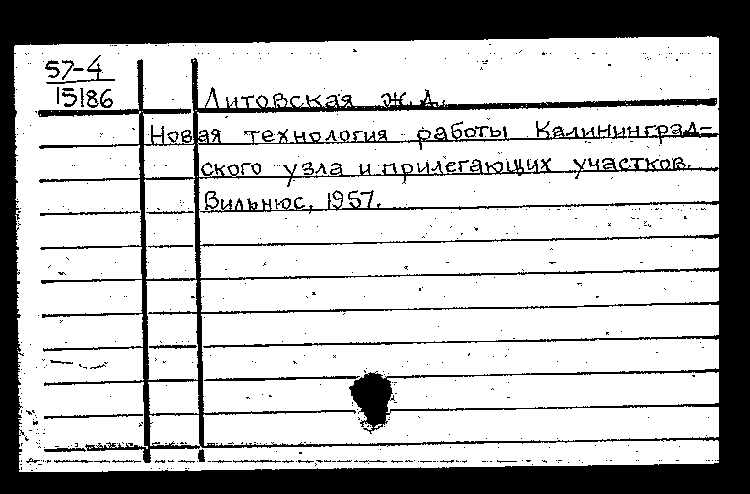 57-4
15186
Литовская ж.д.
Новая технология работы Калининград=
ского узла и прилегающих участков.
Вильнюс, 1957.